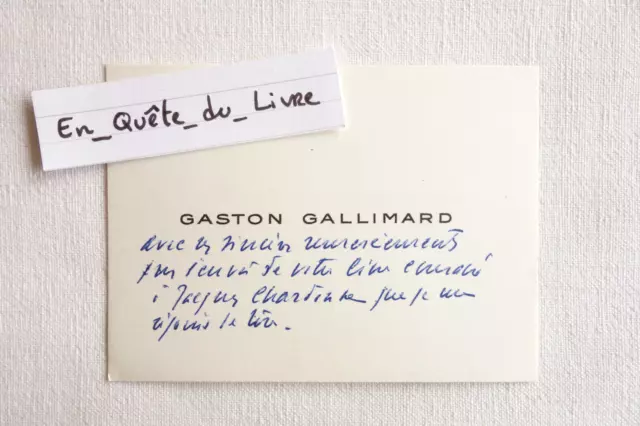 En_Quête_du_Livre
GASTON GALLIMARD
avec ses sincères remerciements
pour l'envoi de votre livre consacré
à Jacques Chardonne que je me
réjouis de lire.